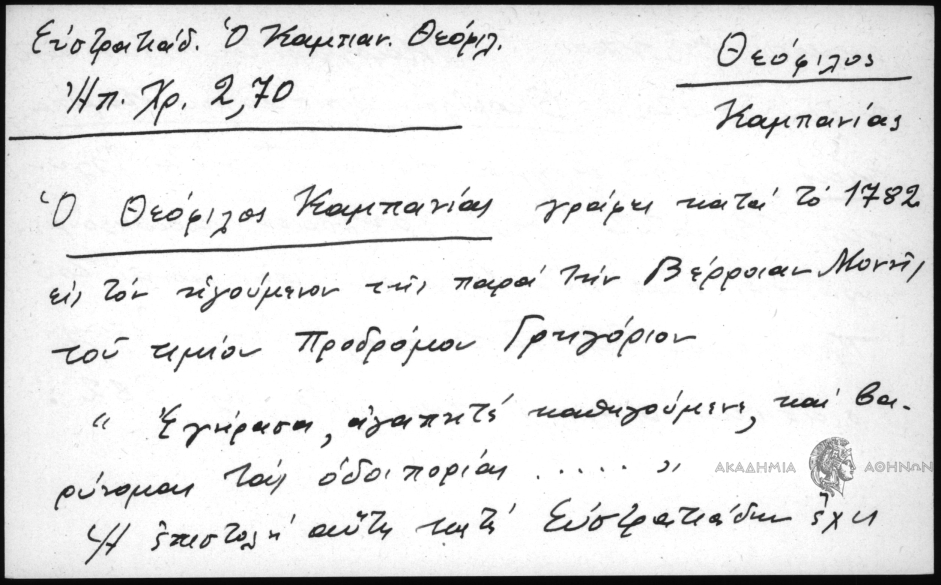 Εὐστρατιάδ. Ὁ Καμπαν. Θεόφιλ.
Ἠπ. Χρ. 2,70
Θεόφιλος
Καμπανίας
Ὁ Θεόφιλος Καμπανίας γράφει κατά τό 1782
εἰς τόν ἡγούμενον τῆς παρά τήν Βέρροιαν Μονῆς
τοῦ τιμίου Προδρόμου Γρηγόριον
" Ἐγήρασα, ἀγαπητέ καθηγούμενε, καί βα-
ρύνομαι τάς ὁδοιπορίας ..... "
Ἡ ἐπιστολή αὕτη κατά Εὐστρατιάδην ἔχει
ΑΚΑΔΗΜΙΑ ΑΘΗΝΩΝ